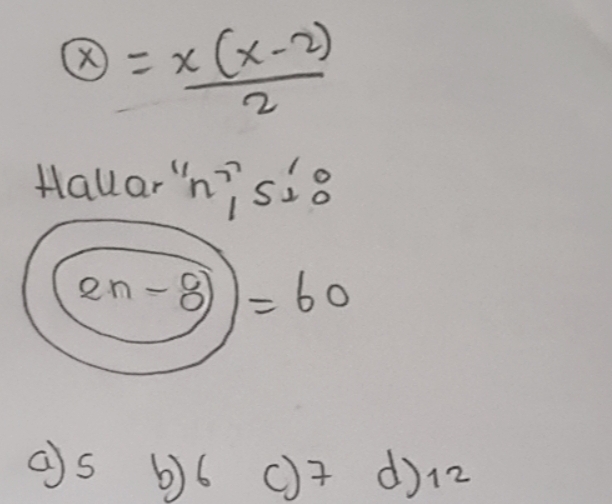 ⓧ = x(x-2)
2
Hallar "n", si:
2n - 8 = 60
a) 5 b) 6 c) 7 d) 12